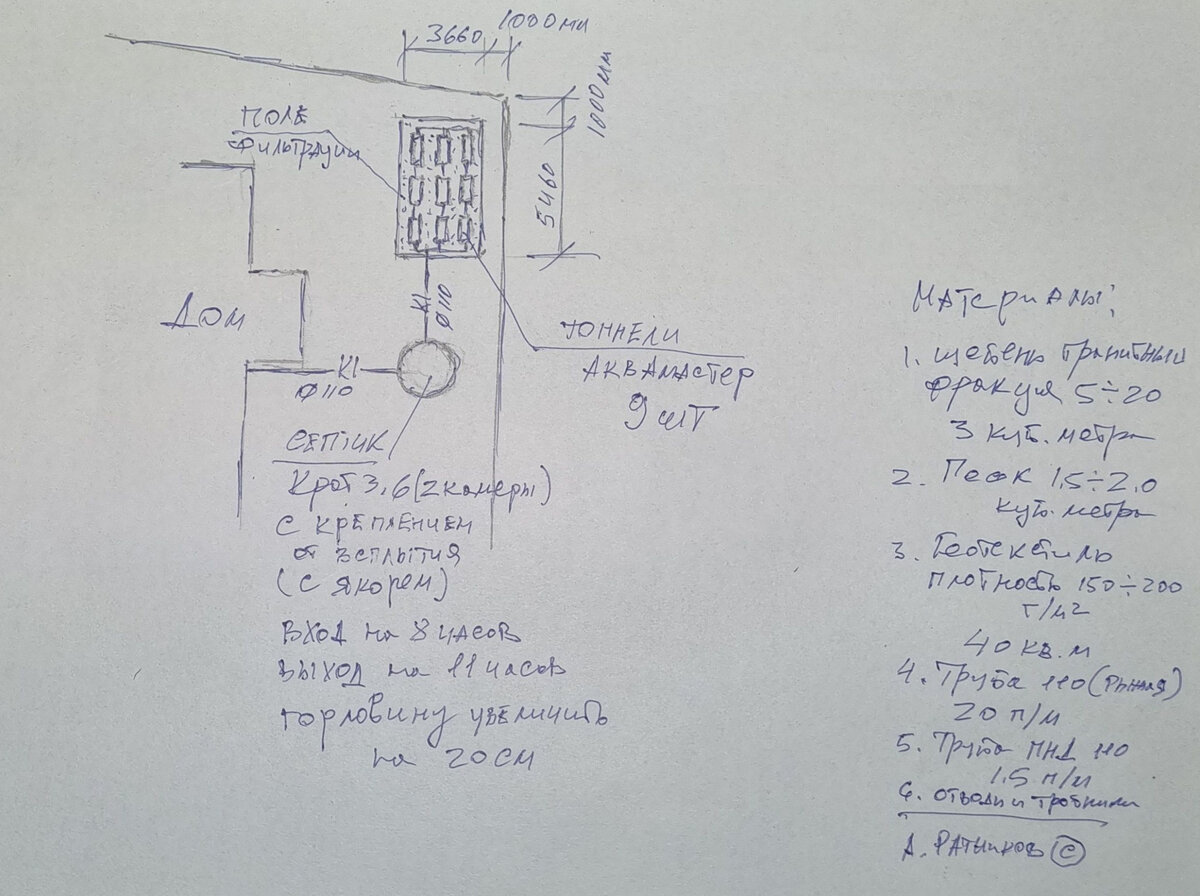 3660
1000мм
1000мм
5460
ПОЛЕ
Фильтрации
ДОМ
К1
Ø110
К1
Ø110
ТОННЕЛИ
АКВАМАСТЕР
9 шт
СЕПТИК
Крот 3,6 (2 камеры)
С КРЕПЛЕНИЕМ
от ВСПЛЫТИЯ
(С ЯКОРЕМ)
ВХОД на 8 часов
ВЫХОД на 11 часов
Горловину увеличить
на 20 см
Материалы:
1. Щебень гранитный
фракция 5÷20
3 куб. метра
2. Песок 1,5÷2,0
куб. метра
3. Геотекстиль
плотность 150÷200
г/м2
40 кв. м
4. Труба 110 (рыжая)
20 п/м
5. Труба ПНД 110
1.5 п/м
6. отводы и тройники
А. РАТНИКОВ ©